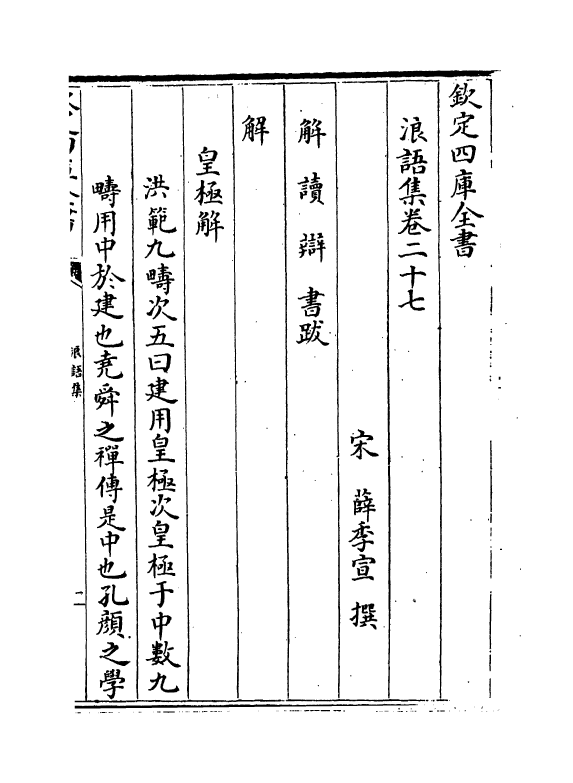 欽定四庫全書
浪語集卷二十七
宋 薛季宣 撰
解 讀 辯 書跋
解
皇極解
洪範九疇次五曰建用皇極次皇極于中數九
疇用中於建也堯舜之禪傳是中也孔顔之學
浪語集